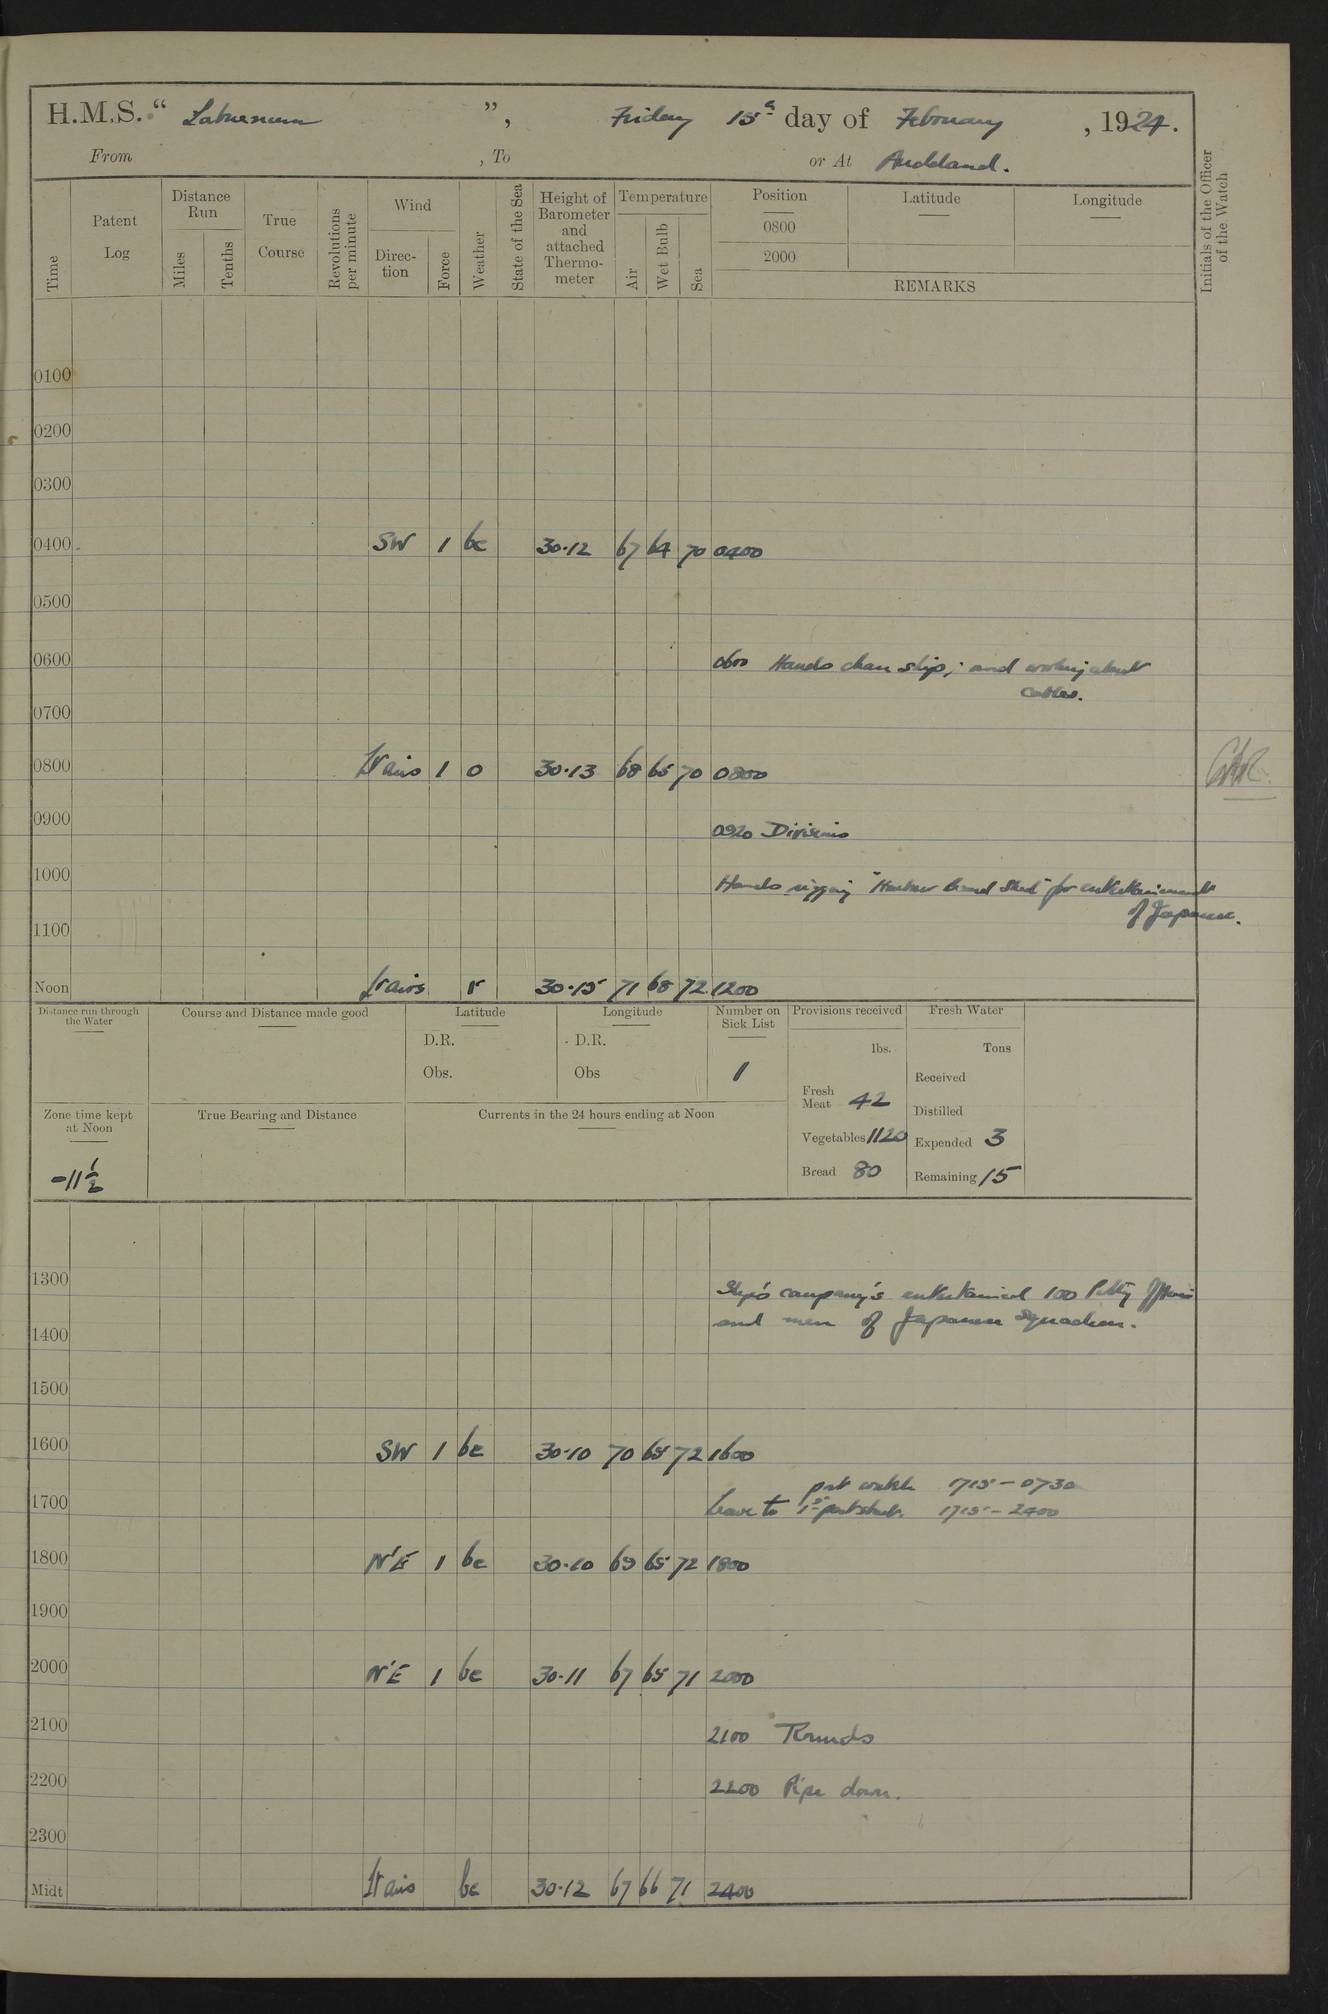 H.M.S. “ Laburnum ”, Friday 15th day of February, 1924.
From , To or At Auckland.
Time
Patent Log
Distance Run
Miles
Tenths
True Course
Revolutions per minute
Wind
Direc-tion
Force
Weather
State of the Sea
Height of Barometer and attached Thermo-meter
Temperature
Air
Wet Bulb
Sea
Position
0800
2000
Latitude
Longitude
REMARKS
Initials of the Officer of the Watch
0100
0200
0300
0400 SW 1 bc 30.12 67 64 70 0400
0500
0600 0600 Hands clean ship; and working about
cables.
0700
0800 Lt airs 1 o 30.13 68 65 70 0800
0900 0920 Divisions
1000 Hands rigging "Harbour Band Stand" for entertainment
of Japanese.
1100
Noon Lt airs r 30.15 71 68 72 1200
Distance run through the Water
Course and Distance made good
Latitude
D.R.
Obs.
Longitude
D.R.
Obs
Number on Sick List
1
Provisions received
lbs.
Fresh Meat 42
Vegetables 1120
Bread 80
Fresh Water
Tons
Received
Distilled
Expended 3
Remaining 15
Zone time kept at Noon
-11 1/2
True Bearing and Distance
Currents in the 24 hours ending at Noon
1300 Ship's company's entertained 100 Petty Officers
and men of Japanese Squadron.
1400
1500
1600 SW 1 bc 30.10 70 65 72 1600
part watch 1715 - 0730
1700 Leave to 1st part 1715 - 2400
1800 N'E 1 bc 30.10 69 65 72 1800
1900
2000 N'E 1 bc 30.11 67 65 71 2000
2100 2100 Rounds
2200 2200 Pipe down.
2300
Midt Lt airs bc 30.12 67 66 71 2400